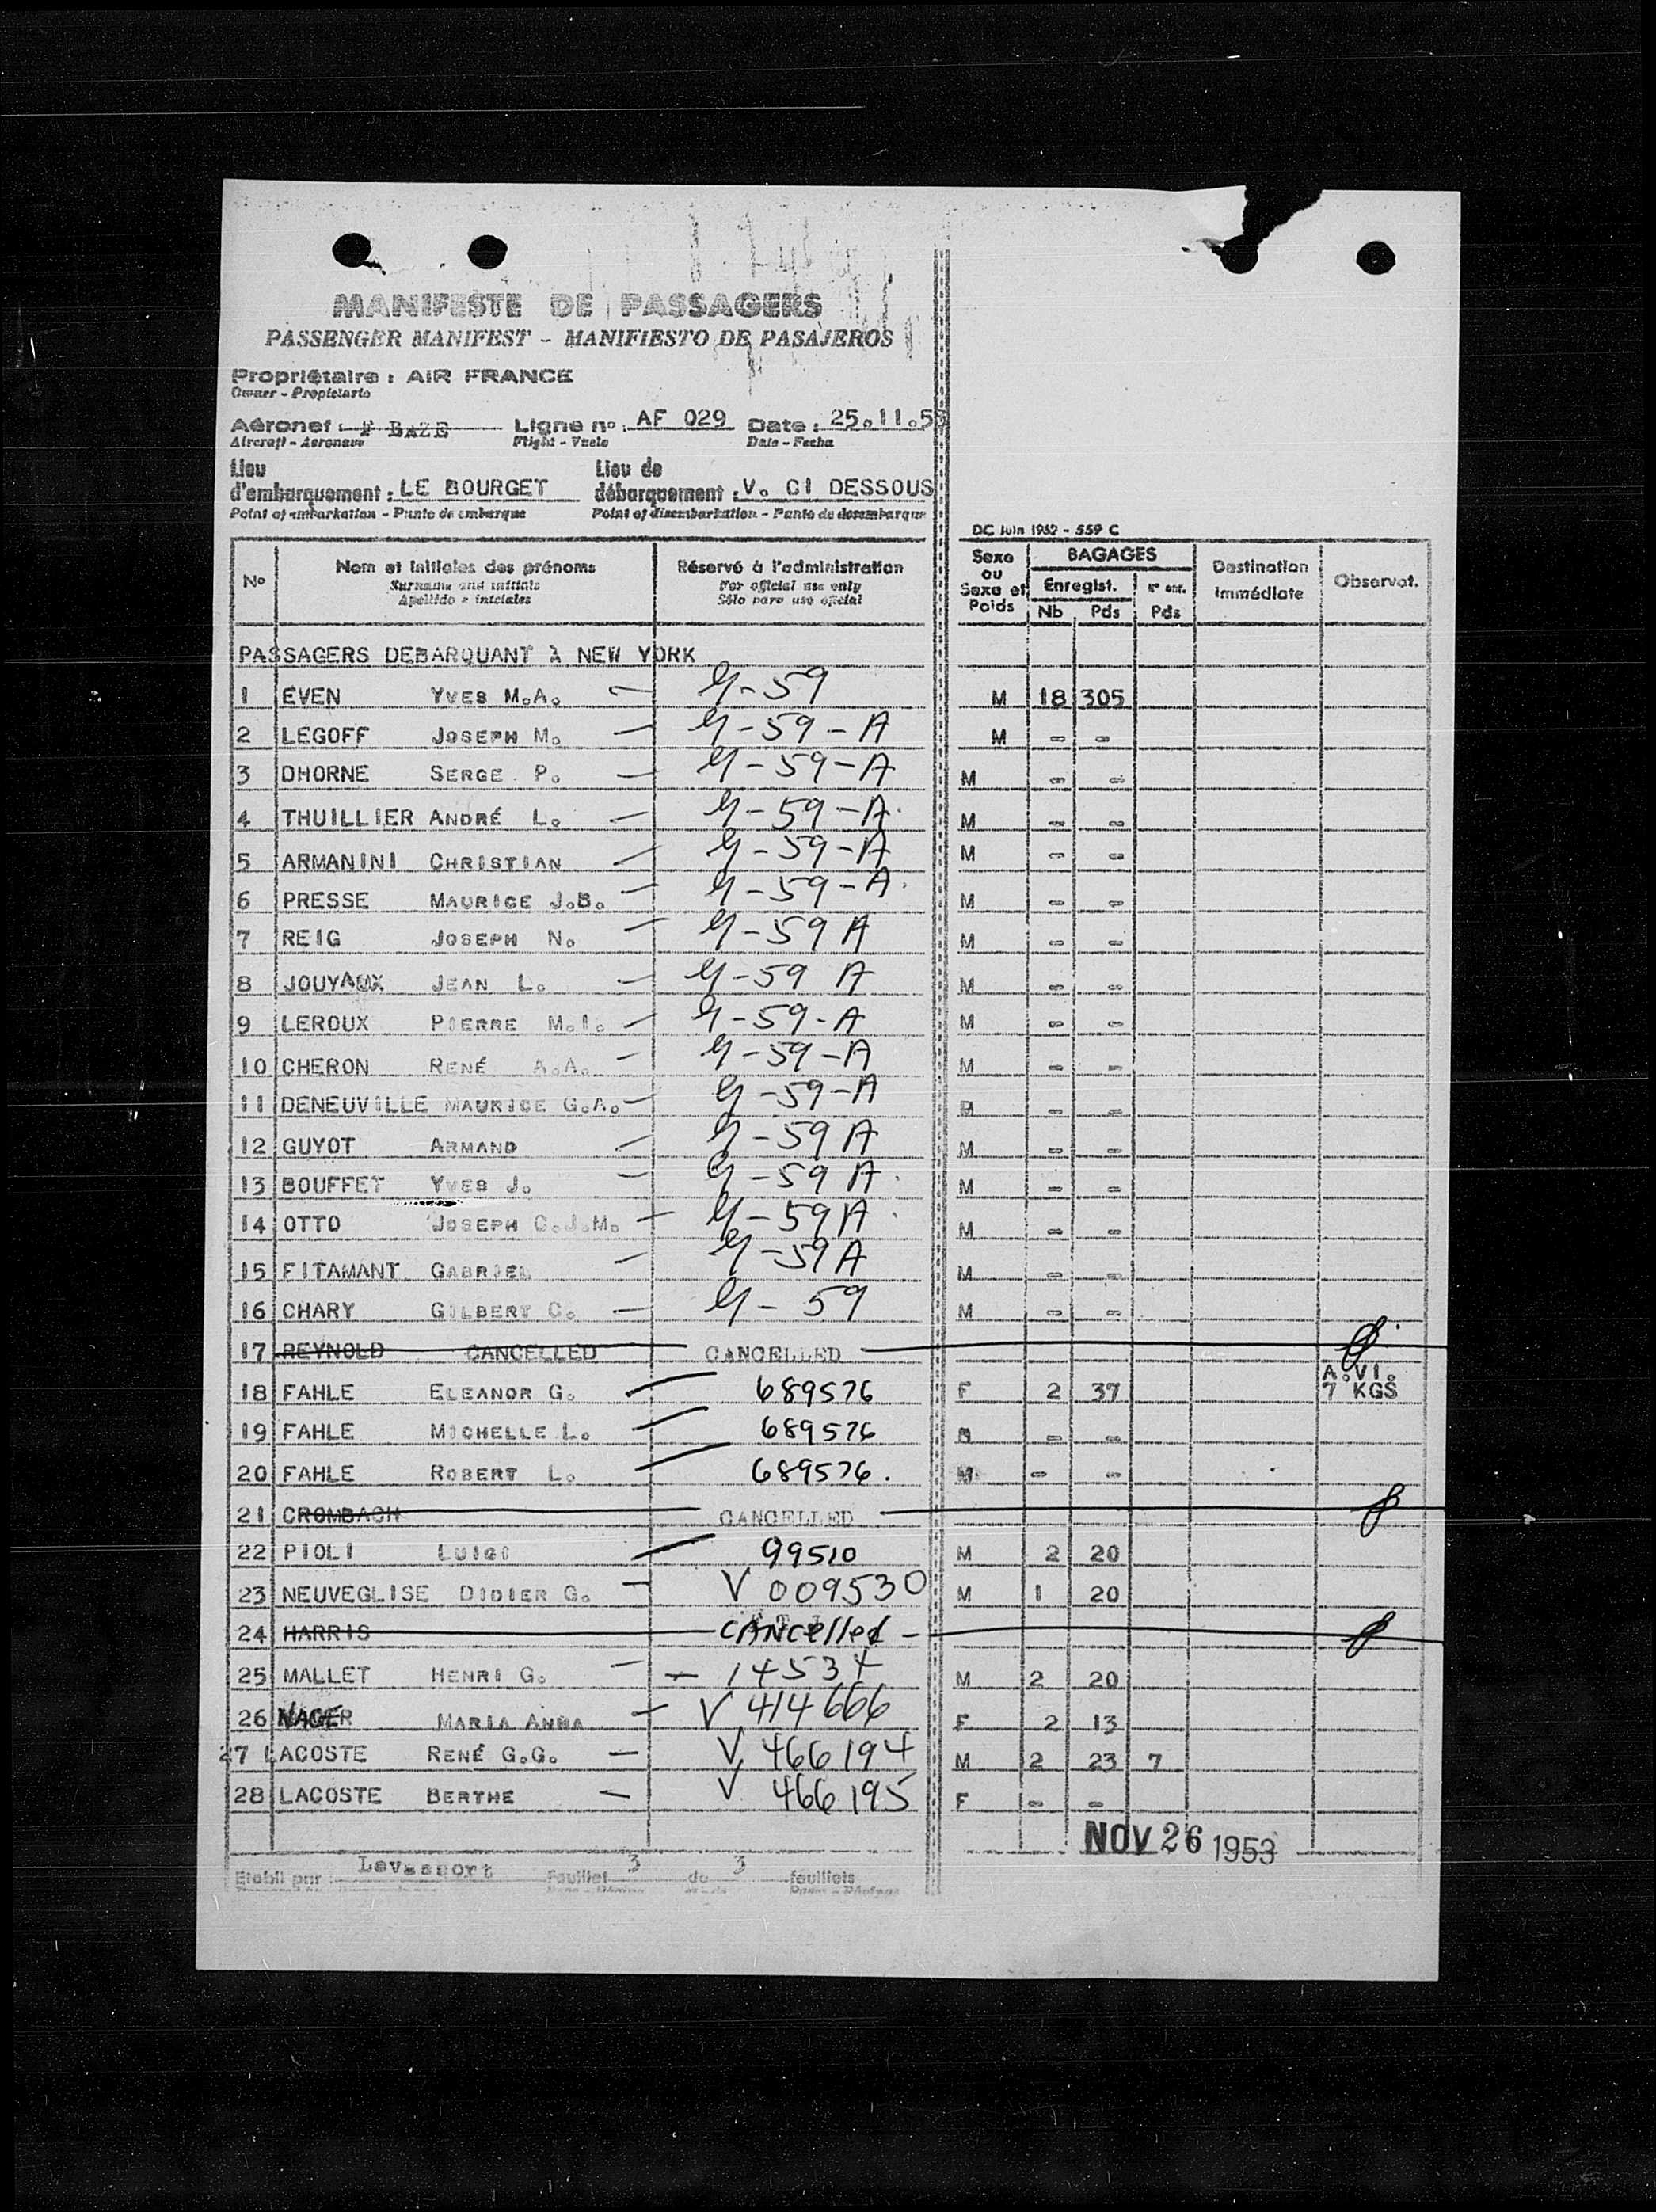 MANIFESTE DE PASSAGERS
PASSENGER MANIFEST - MANIFIESTO DE PASAJEROS
Propriétaire : AIR FRANCE
Owner - Propietario
Aéronef : F BAZE Ligne n° : AF 029 Date : 25.11.53
Aircraft - Aeronave Flight - Vuelo Date - Fecha
Lieu d'embarquement : LE BOURGET Lieu de débarquement : V. CI DESSOUS
Point of embarkation - Punto de embarque Point of disembarkation - Punto de desembarque
DC Juin 1952 - 559 C
N° Nom et initiales des prénoms Réservé à l'administration Sexe ou Sexe et Poids BAGAGES Destination immédiate Observat.
Surname and initials For official use only Enregist.
Apellido e iniciales Sólo para uso oficial Nb Pds Pds
PASSAGERS DEBARQUANT À NEW YORK
1 EVEN YVES M.A. — G-59 M 18 305
2 LEGOFF JOSEPH M. — G-59-A M - -
3 DHORNE SERGE P. — G-59-A M - -
4 THUILLIER ANDRÉ L. — G-59-A M - -
5 ARMANINI CHRISTIAN — G-59-A M - -
6 PRESSE MAURICE J.B. — G-59-A M - -
7 REIG JOSEPH N. — G-59 A M - -
8 JOUYAUX JEAN L. — G-59 A M - -
9 LEROUX PIERRE M.I. — G-59-A M - -
10 CHERON RENÉ A.A. — G-59-A M - -
11 DENEUVILLE MAURICE G.A. — G-59-A - -
12 GUYOT ARMAND — G-59 A M - -
13 BOUFFET YVES J. — G-59 A M - -
14 OTTO JOSEPH C.J.M. — G-59A M - -
15 FITAMANT GABRIEL — G-59A M - -
16 CHARY GILBERT C. — G-59 M - -
17 REYNOLD CANCELLED CANCELLED
18 FAHLE ELEANOR G. 689576 F 2 37 A.VI. 7 KGS
19 FAHLE MICHELLE L. 689576 - -
20 FAHLE ROBERT L. 689576. - -
21 CROMBACH CANCELLED
22 PIOLI LUIGI 99510 M 2 20
23 NEUVEGLISE DIDIER G. — V 009530 M 1 20
24 HARRIS CANCElled
25 MALLET HENRI G. — 14534 M 2 20
26 NAGER MARIA ANNA — V 414666 F 2 13
27 LACOSTE RENÉ G.G. — V 466194 M 2 23 7
28 LACOSTE BERTHE — V 466195 F - -
NOV 26 1953
Etabli par : Levassort Feuillet 3 de 3 feuillets